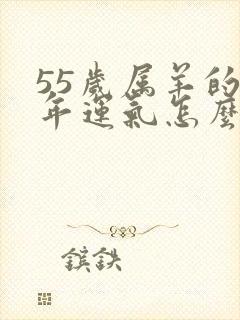 55歲属羊的
年運氣怎麼
鑌鉄